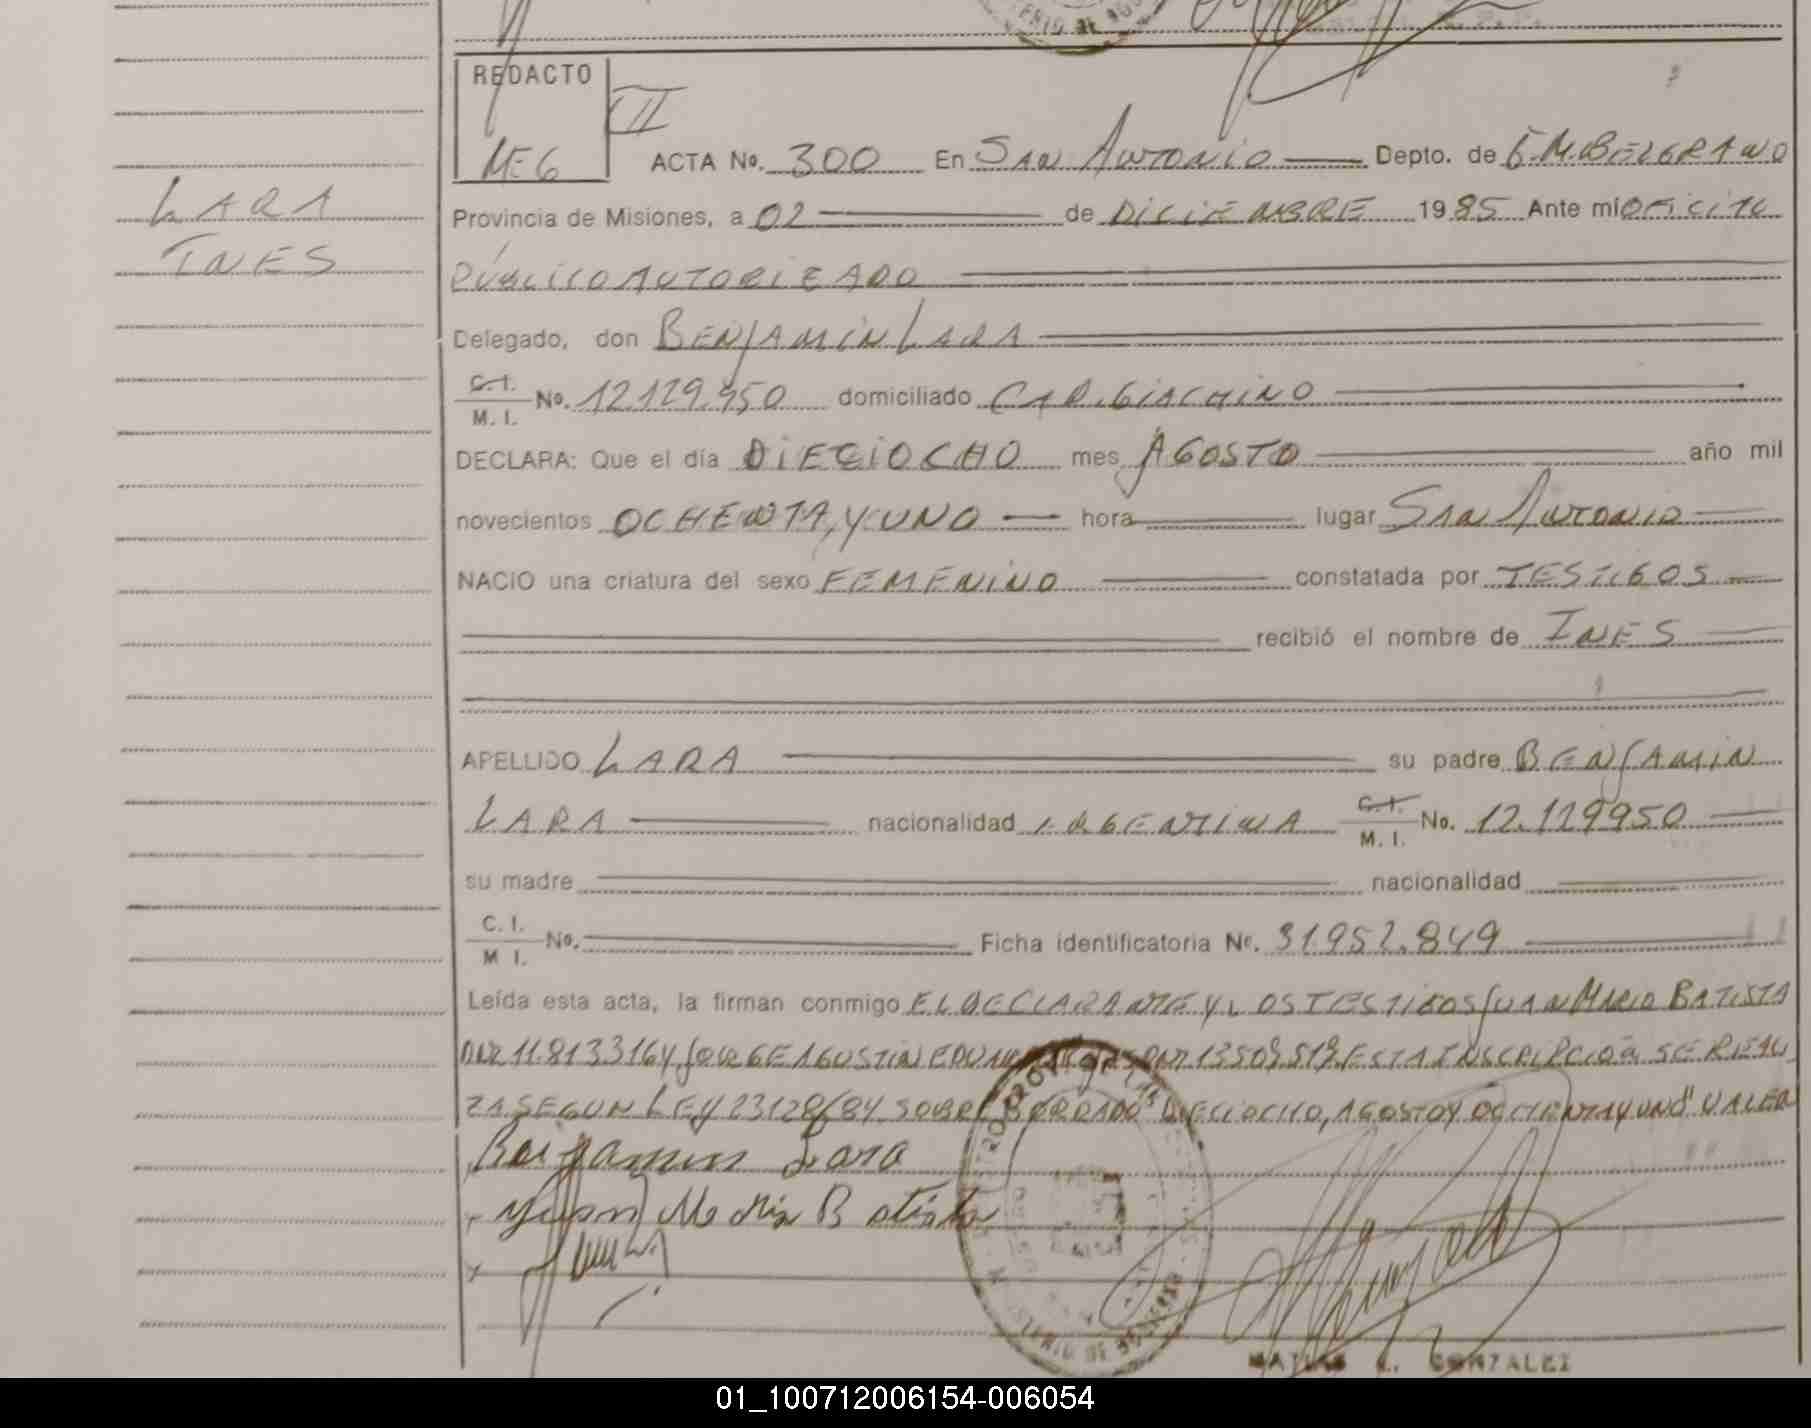 REDACTO
II
M.E6
ACTA No. 300 En SAN ANTONIO Depto. de G.M.BELGRANO
LARA
INES
Provincia de Misiones, a 02 de DICIEMBRE 1985 Ante mí OFICIAL
PÚBLICO AUTORIZADO
Delegado, don BENJAMIN LARA
C.I. / M.I. No. 12.129.950 domiciliado CAP. GIACHINO
DECLARA: Que el día DIECIOCHO mes AGOSTO año mil
novecientos OCHENTA Y UNO hora lugar SAN ANTONIO
NACIO una criatura del sexo FEMENINO constatada por TESTIGOS
recibió el nombre de INES
APELLIDO LARA su padre BENJAMIN
LARA nacionalidad ARGENTINA C.I. / M.I. No. 12.129950
su madre nacionalidad
C.I. / M I. No. Ficha identificatoria No. 31.952.849
Leída esta acta, la firman conmigo EL DECLARANTE Y LOS TESTIGOS JUAN MARIO BATISTA
DNI 11.813316 Y JORGE AGUSTIN DNI 13509.519. ESTA INSCRIPCIÓN SE REALI
ZA SEGUN LEY 23128/84. SOBRE BORRADO "DIECIOCHO, AGOSTO Y OCHENTA Y UNO" VALEN
Benjamin Lara
Juan Mario Batista
MATIAS GONZALEZ
01_100712006154-006054